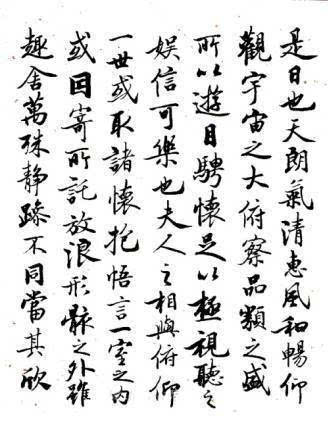 是日也天朗氣清惠風和暢仰
觀宇宙之大俯察品類之盛
所以遊目騁懷足以極視聽之
娛信可樂也夫人之相與俯仰
一世或取諸懷抱悟言一室之內
或因寄所託放浪形骸之外雖
趣舍萬殊静躁不同當其欣